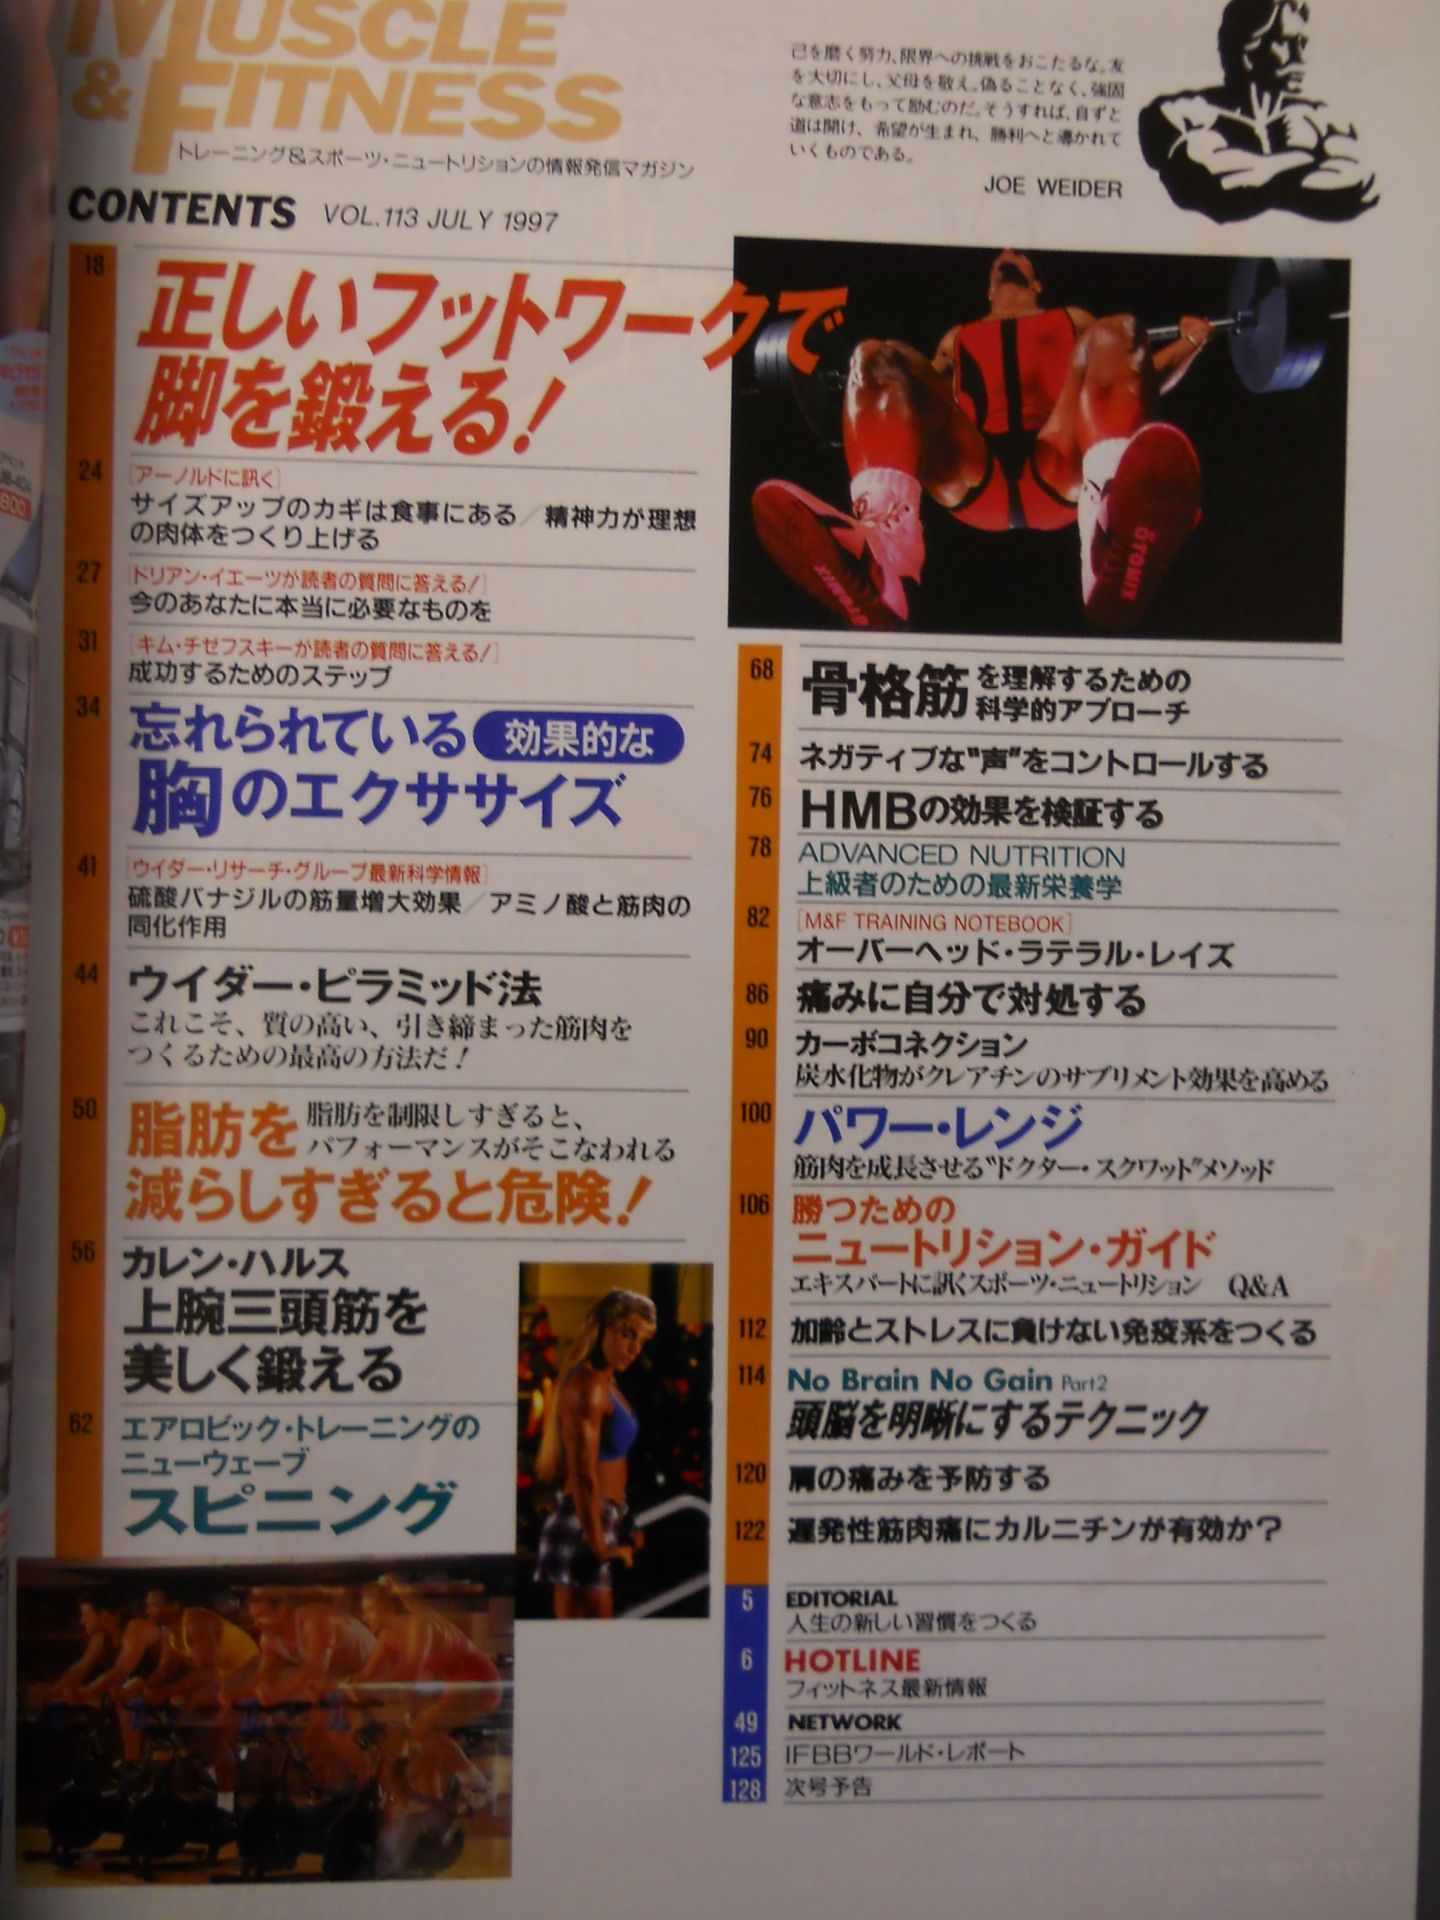 MUSCLE
& FITNESS
トレーニング&スポーツ・ニュートリションの情報発信マガジン
己を磨く努力、限界への挑戦をおこたるな。友
を大切にし、父母を敬え。偽ることなく、強固
な意志をもって励むのだ。そうすれば、自ずと
道は開け、希望が生まれ、勝利へと導かれて
いくものである。
JOE WEIDER
CONTENTS VOL.113 JULY 1997
18
正しいフットワークで
脚を鍛える!
24
[アーノルドに訊く]
サイズアップのカギは食事にある/精神力が理想
の肉体をつくり上げる
27
[ドリアン・イエーツが読者の質問に答える!]
今のあなたに本当に必要なものを
31
[キム・チゼフスキーが読者の質問に答える!]
成功するためのステップ
34
忘れられている 効果的な
胸のエクササイズ
41
[ウイダー・リサーチ・グループ最新科学情報]
硫酸バナジルの筋量増大効果/アミノ酸と筋肉の
同化作用
44
ウイダー・ピラミッド法
これこそ、質の高い、引き締まった筋肉を
つくるための最高の方法だ!
50
脂肪を 脂肪を制限しすぎると、
パフォーマンスがそこなわれる
減らしすぎると危険!
56
カレン・ハルス
上腕三頭筋を
美しく鍛える
62
エアロビック・トレーニングの
ニューウェーブ
スピニング
OTOMIX
68
骨格筋を理解するための
科学的アプローチ
74
ネガティブな“声”をコントロールする
76
HMBの効果を検証する
78
ADVANCED NUTRITION
上級者のための最新栄養学
82
[M&F TRAINING NOTEBOOK]
オーバーヘッド・ラテラル・レイズ
86
痛みに自分で対処する
90
カーボコネクション
炭水化物がクレアチンのサプリメント効果を高める
100
パワー・レンジ
筋肉を成長させる“ドクター・スクワット”メソッド
106
勝つための
ニュートリション・ガイド
エキスパートに訊くスポーツ・ニュートリション Q&A
112
加齢とストレスに負けない免疫系をつくる
114
No Brain No Gain Part2
頭脳を明晰にするテクニック
120
肩の痛みを予防する
122
遅発性筋肉痛にカルニチンが有効か?
5
EDITORIAL
人生の新しい習慣をつくる
6
HOTLINE
フィットネス最新情報
49
NETWORK
125
IFBBワールド・レポート
128
次号予告